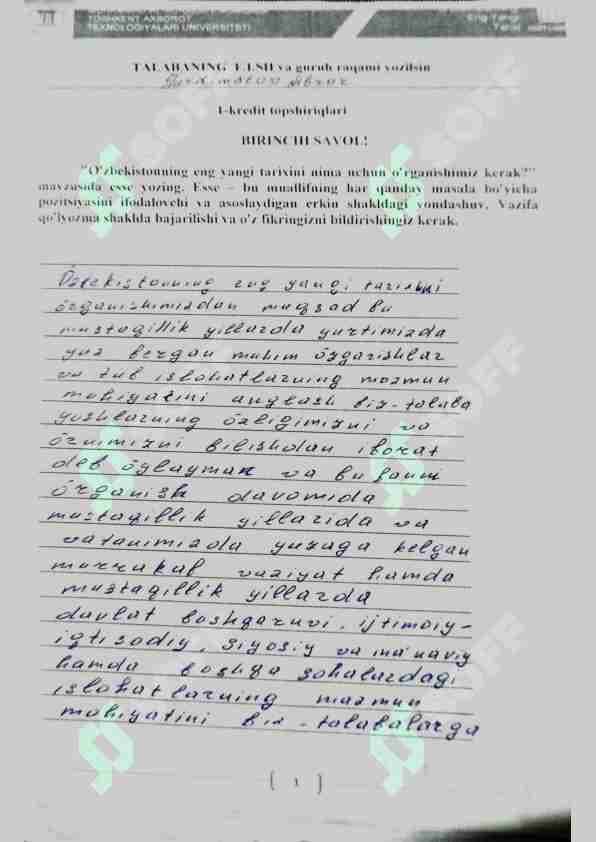 TOSHKENT AXBOROT
TEXNOLOGIYALARI UNIVERSITETI
Eng Yangi
TALABANING F.I.SH va guruh raqami yozilsin
1-kredit topshiriqlari
BIRINCHI SAVOL!
"O'zbekistonning eng yangi tarixini nima uchun o'rganishimiz kerak?"
mavzusida esse yozing. Esse – bu muallifning har qanday masala bo'yicha
pozitsiyasini ifodalovchi va asoslaydigan erkin shakldagi yondashuv. Vazifa
qo'lyozma shaklda bajarilishi va o'z fikringizni bildirishingiz kerak.
Özbekistonning eng yangi tarixini
örganishimizdan maqsad bu
mustaqillik yillarda yurtimizda
yuz bergan muhim özgarishlar
va tub islohatlarning mazmun
mohiyatini anglash biz-talaba
yoshlarning özligimizni va
özimizni bilishdan iborat
deb öylayman va bu fanni
örganish davomida
mustaqillik yillarida va
vatanimizda yuzaga kelgan
murrakab vaziyat hamda
mustaqillik yillarda
davlat boshqaruvi, ijtimoiy-
iqtisodiy, siyosiy va ma'naviy
hamda boshqa sohalardagi
islohatlarning mazmun
mohiyatini biz-talabalarga
( 1 )
SOFF
SOFF
SOFF
SOFF
SOFF